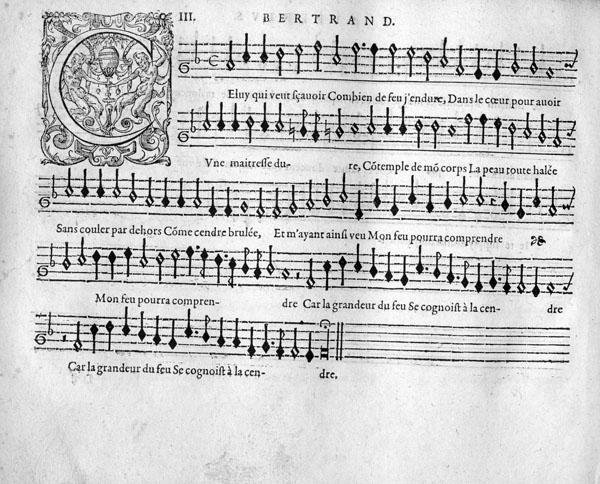 III. BERTRAND.
CEluy qui veut sçavoir Combien de feu j'endure, Dans le cœur pour avoir
Vne maitresse du- re, Cõtemple de mõ corps La peau toute halée
Sans couler par dehors Cõme cendre brulée, Et m'ayant ainsi veu Mon feu pourra comprendre
Mon feu pourra compren- dre Car la grandeur du feu Se cognoist à la cen- dre
Car la grandeur du feu Se cognoist à la cen- dre.